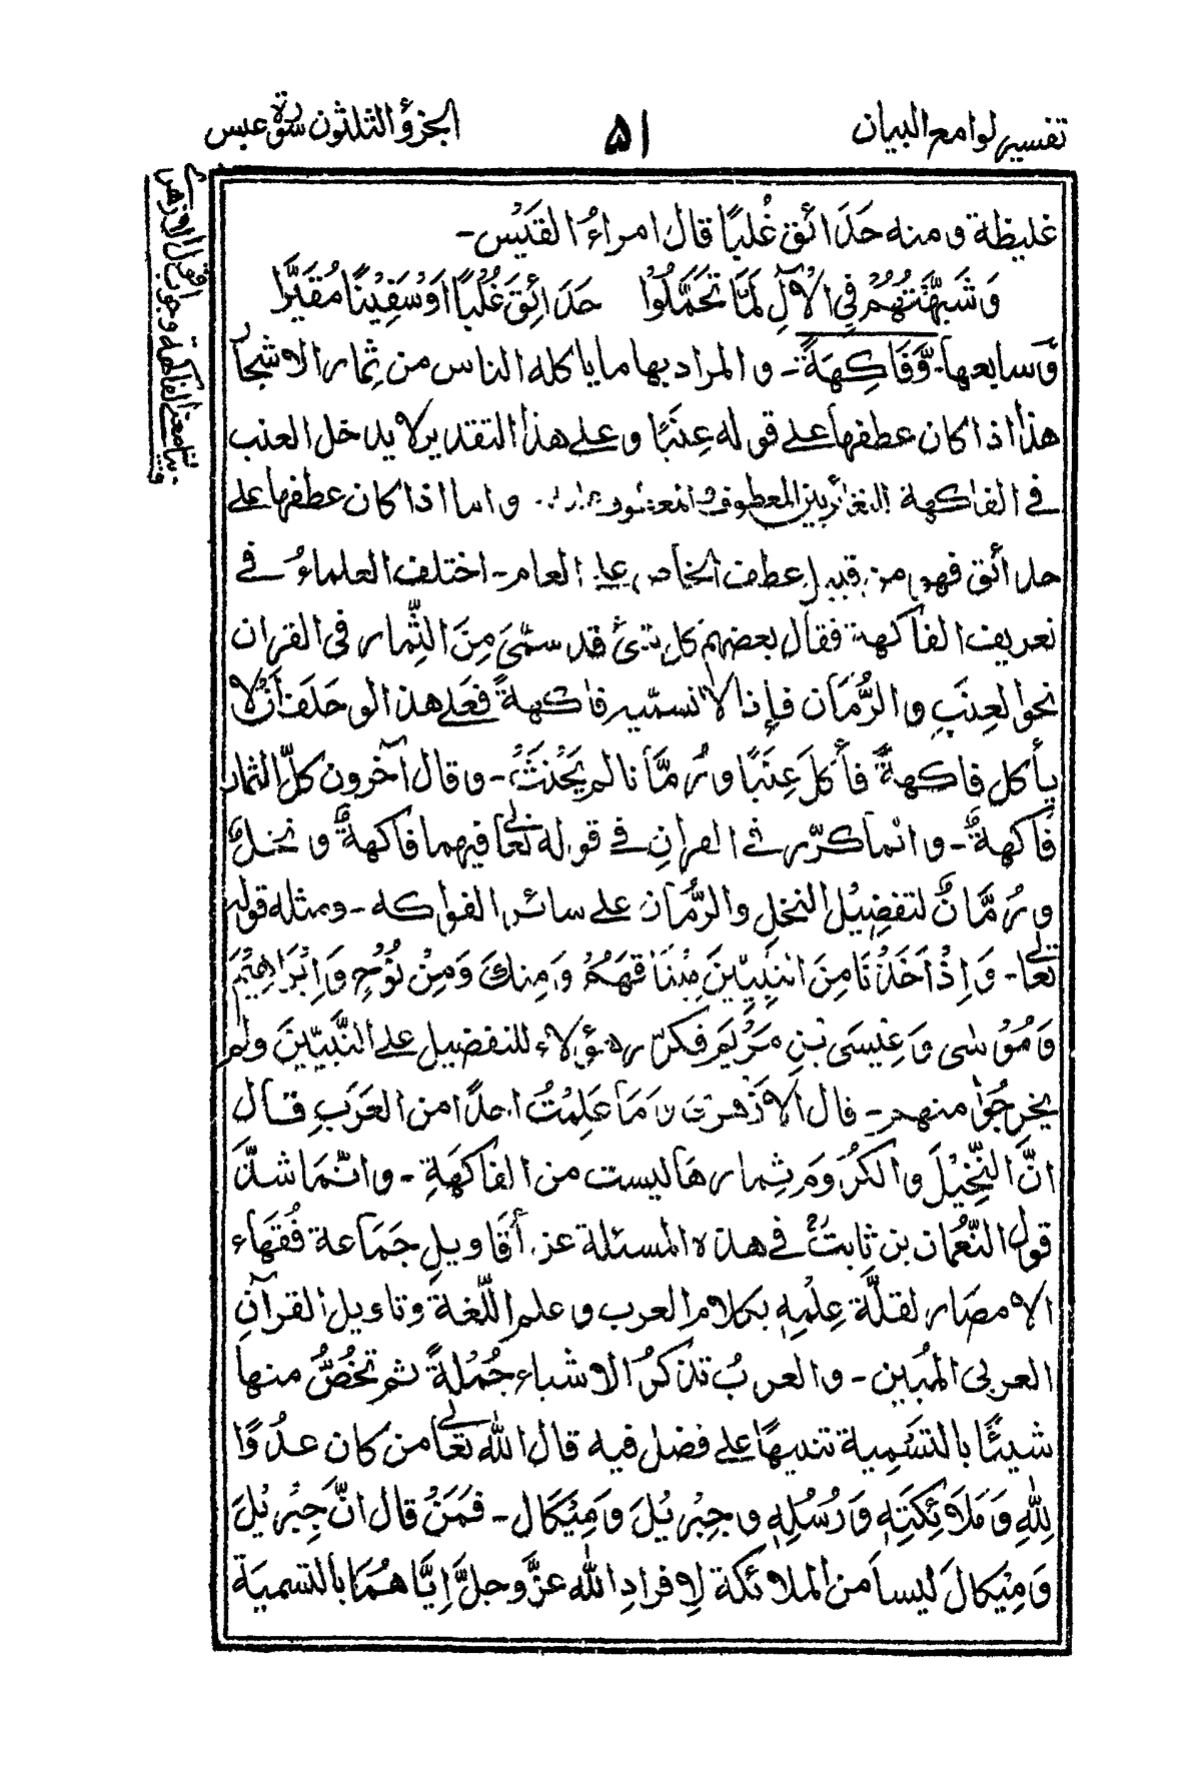 تفسير لوامع البيان
٥١
الجزؤ الثلثون سورة عبس
غليظة ومنه حَدَائق غُلبًا قال امراءُ القَيْس -
وَشَبَّهْتُهُمْ فِي الْآلِ لَمَّا تَحَمَّلُوْا حَدَائِقَ غُلْبًا اَوْ سَفِيْنًا مُقَيَّرًا
وّسابعها - وَّفَاكِهَةً - والمراد بها ما ياكله الناس من ثِمار الاشجار
هذا اذا كان عطفها على قوله عِنَبًا وعلى هذا التقدير لا يدخل العنب
في الفاكهة للتغائر بين المعطوف والمعطوف واما اذا كان عطفها على
حدائق فهو من قبيل عطف الخاص على العام - اختلف العلماءُ في
تعريف الفاكهة فقال بعضهم كل شئ قد سمّي مِنَ الثِّمار في القران
نحو العِنَبِ والرُّمَّان فإذا لا نسمّيه فاكهةً فعلى هذا لو حَلَفَ أنْ لا
يأكل فاكهةً فأكلَ عِنَبًا ورُمَّانا لم يَحْنَثْ - وقال آخرون كلّ الثمار
فاكهةٌ - وانما كرّر في القرانِ في قوله تعالى فيهما فاكهةٌ ونخلٌ
ورُمَّانٌ لتفضِيْل النخلِ والرُّمَّان على سائر الفواكه - ومثله قوله
تعالى - وَاِذْ اَخَذْنَا مِنَ النَّبِيّيْنَ مِيْثَاقَهُمْ وَمِنْكَ وَمِنْ نُوْحٍ وَاِبْرَاهِيْمَ
وَمُوْسٰى وَعِيْسَى بْنِ مَرْيَمَ فكرّر هؤلاء للتفضيل على النَّبيّينَ ولم
يخرجُوا منهم - قال الازْهرى مَا عَلِمْتُ احدًا من العَرَبِ قال
انَّ النَّخِيْلَ والكُرُوْمَ ثِمارهَا ليست من الفاكهَةِ - وانّما شذَّ
قول النّعْمان بن ثابتٍ في هذه المسئلة عن أقَاويلِ جَمَاعة فُقَهَاء
الامصَار لقلَّة عِلْمِهٖ بكلام العرب وعلم اللّغة وتاويل القرآنِ
العربي المُبِين - والعربُ تذكرُ الاشياء جُمْلةً ثم تخُصُّ منها
شيئًا بالتسْمِية تنبيهًا على فضل فيه قال الله تعالى من كان عدُوًّا
لِلّٰهِ وَمَلَآئِكَتِهٖ وَرُسُلِهٖ وجِبْرِيْلَ وَمِيْكَال - فمَنْ قال انَّ جِبْرِيْلَ
وَمِيْكَالَ ليسا من الملائكة لِافرادِ الله عزَّ وجلَّ اِيَّاهُمَا بالتسميَة